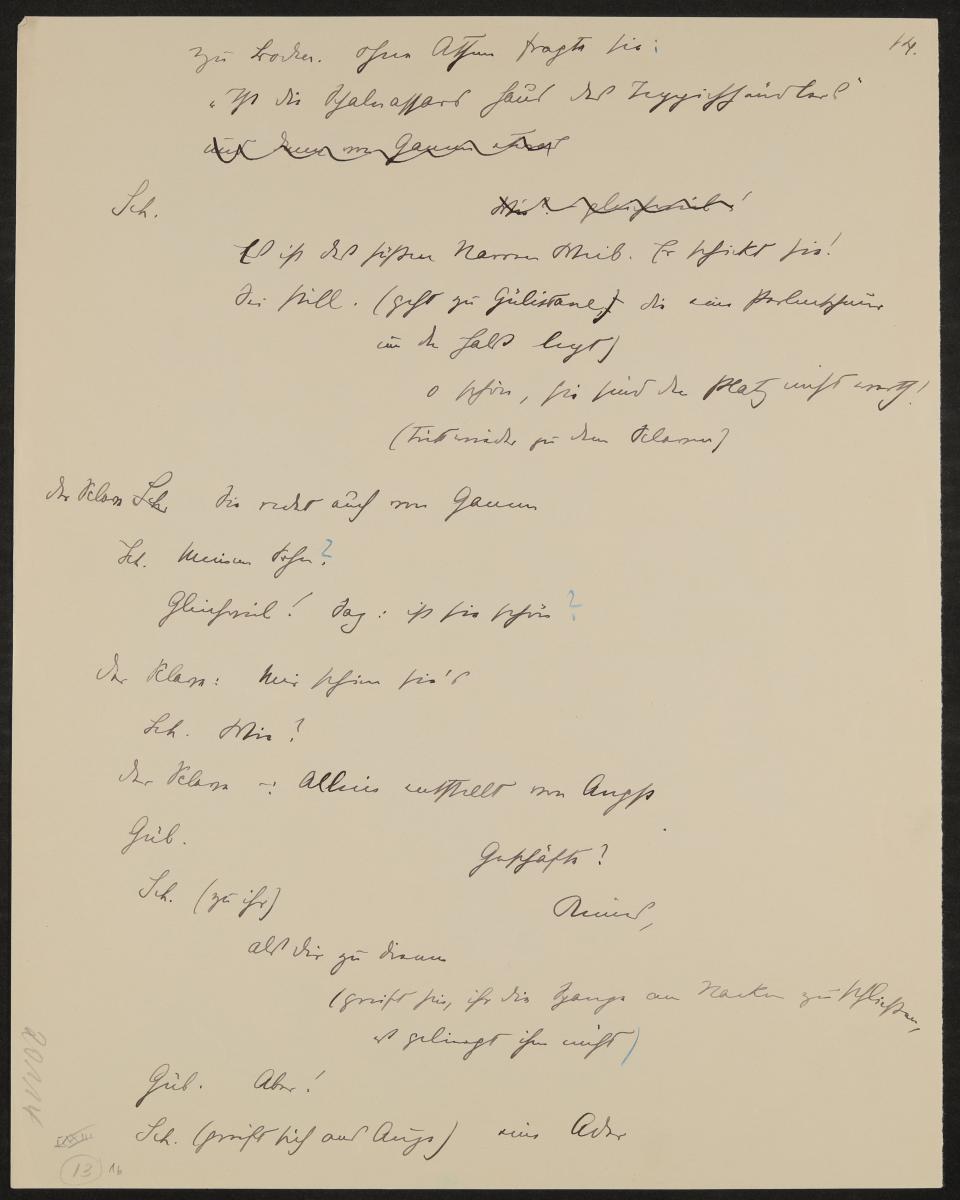 14.
zu Boden. Ohne Athem fragte sie:
„Ist dies Schalnassars Haus des Teppichhändlers"
und dann von Ganem etwas
Sch. Wie? gleichviel!
Es ist des süßen Narren Weib. Er schickt sie!
Sei still. (geht zu Gülistane, die eine Perlenschnur
um den Hals legt)
o schön, sie sind den Platz nicht werth!
(tritt wieder zu dem Sklaven)
Der Sklave Sch. Sie redet auch von Ganem
Sch. Meinem Sohn?
Gleichviel! Sag: ist sie schön?
Der Sklave: Mir schien sie's
Sch. Wie?
Der Sklave –: Allein entstellt von Angst
Gül. Geschäfte?
Sch. (zu ihr) Keines,
als dir zu dienen
(greift hin, ihr die Spange am Nacken zu schließen,
es gelingt ihm nicht)
Gül. Aber!
Sch. (greift sich ans Auge) eine Ader
13 16